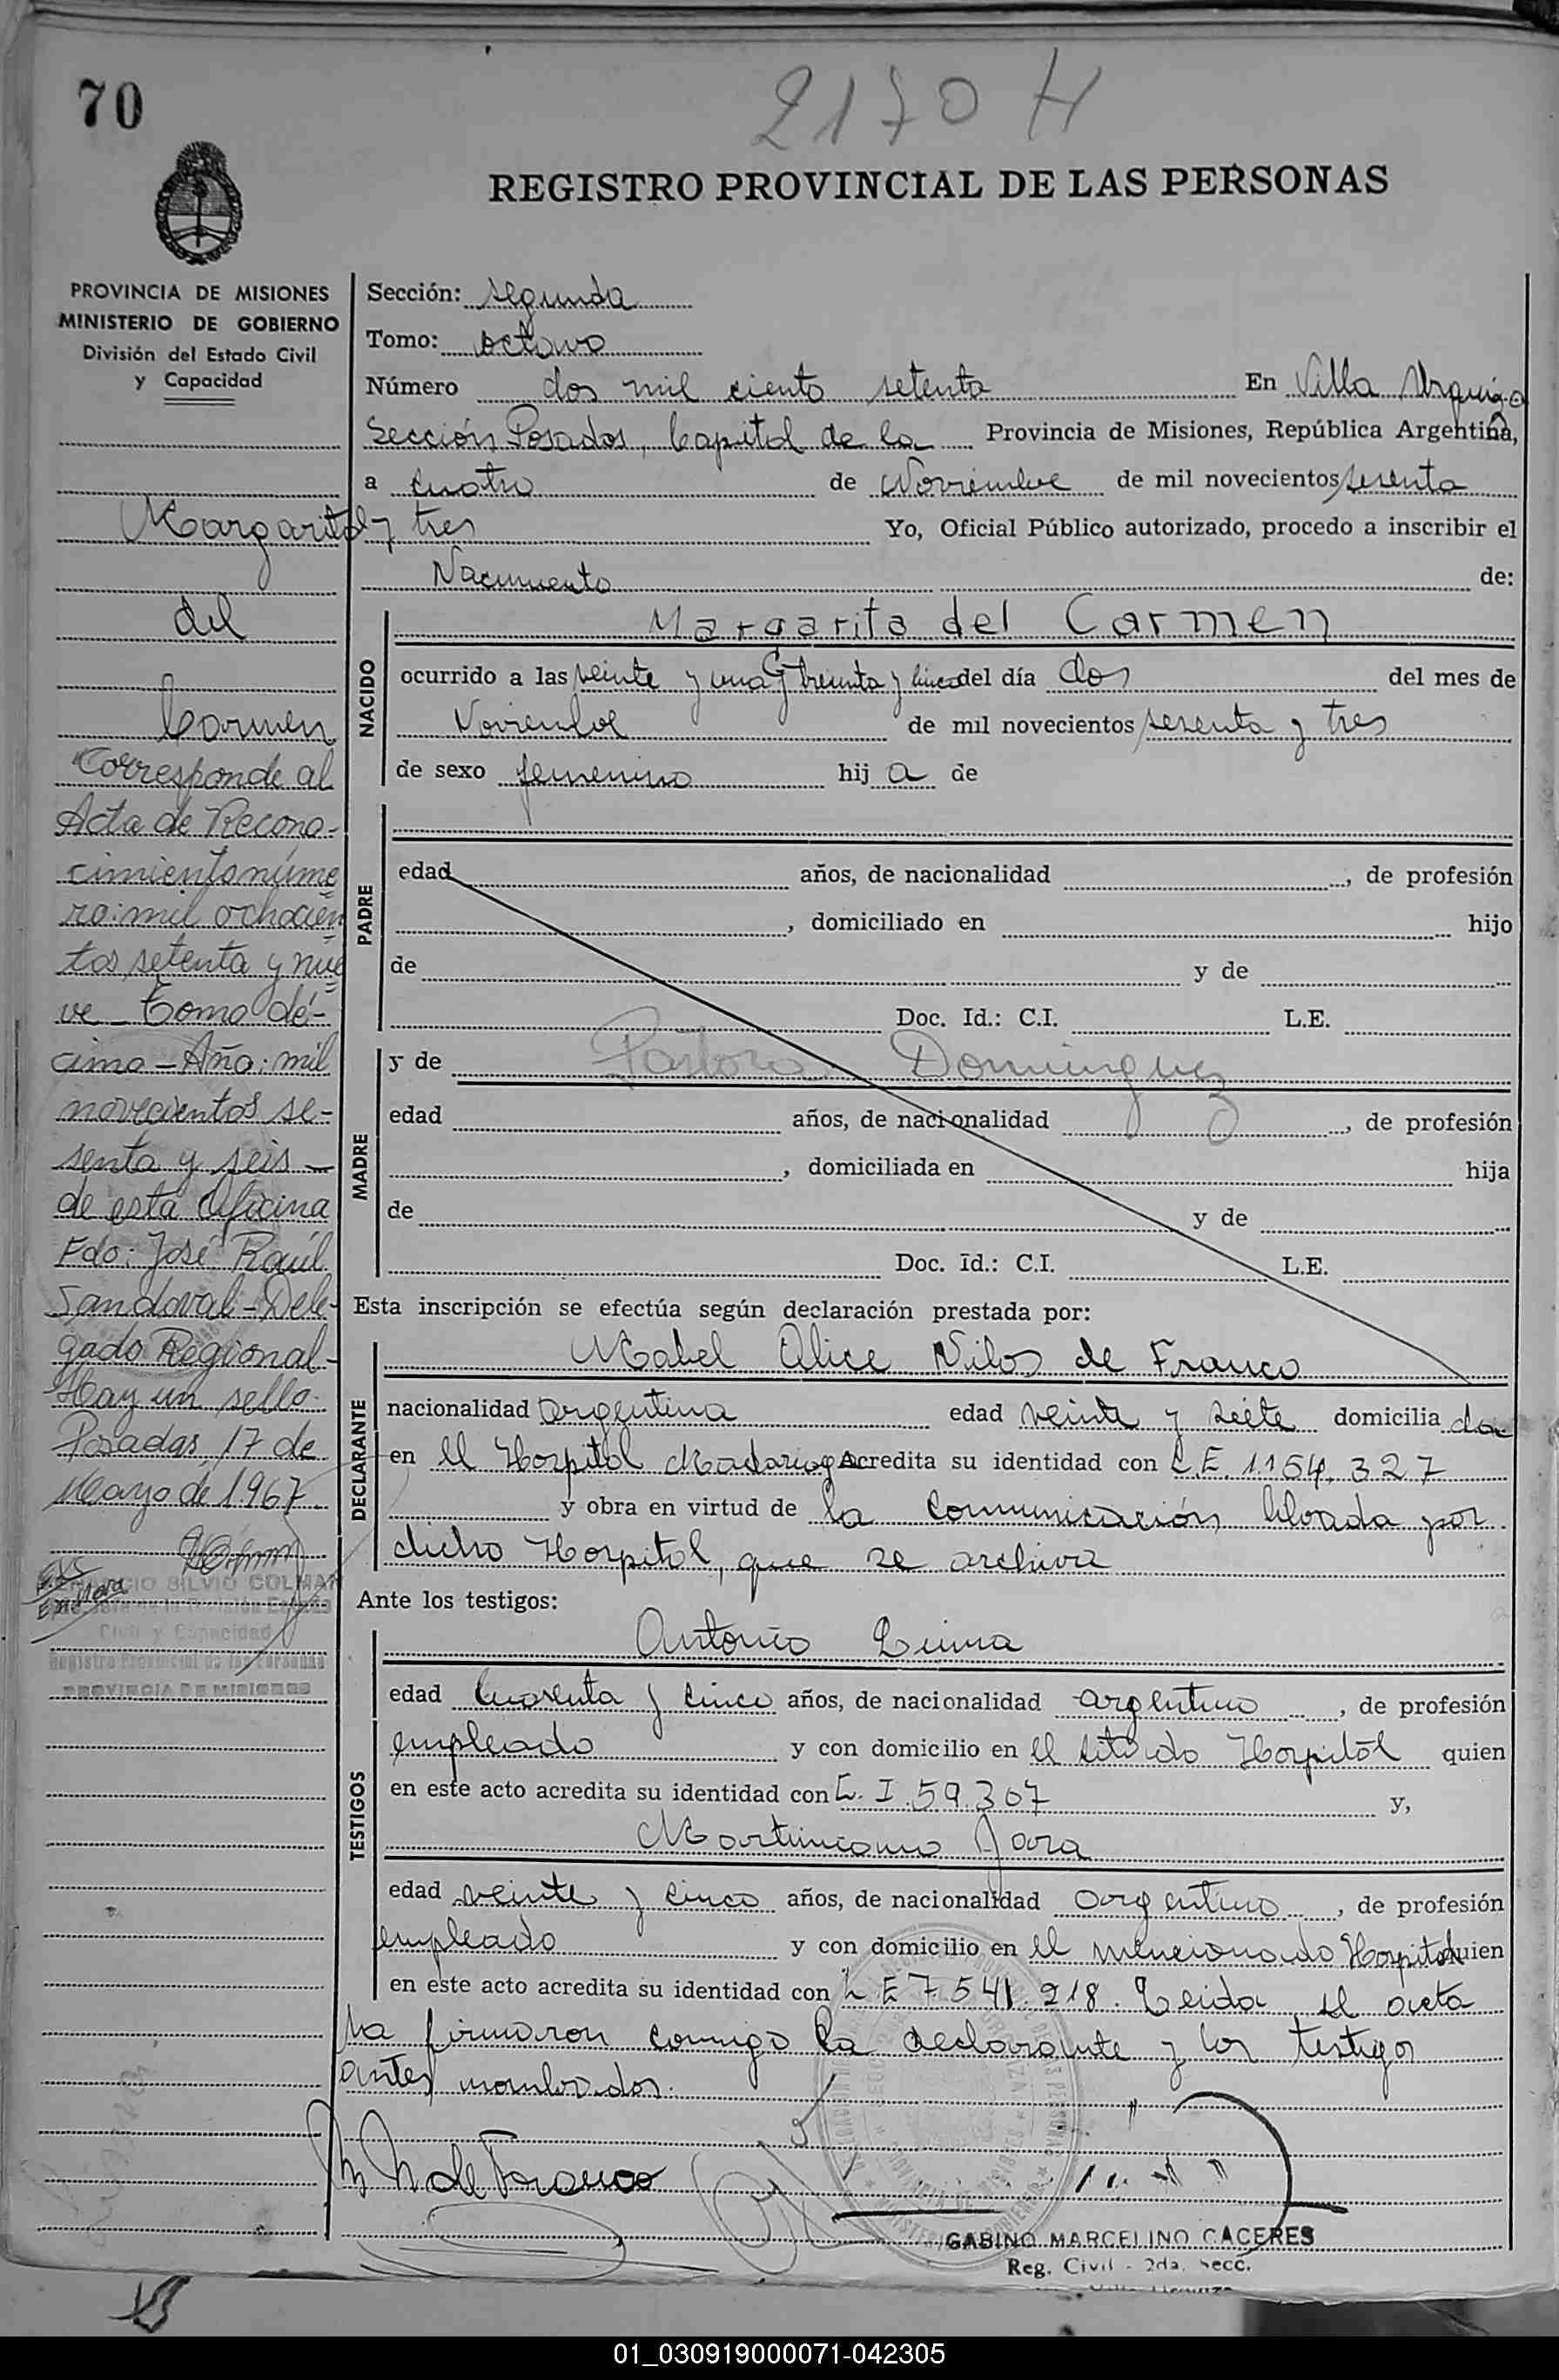 70
2170 H
REGISTRO PROVINCIAL DE LAS PERSONAS
PROVINCIA DE MISIONES
MINISTERIO DE GOBIERNO
División del Estado Civil
y Capacidad
Margarita
del
Carmen
Corresponde al
Acta de Recono-
cimiento núme
ro: mil ochocien
tos setenta y nue
ve - Tomo dé-
cimo - Año: mil
novecientos se-
senta y seis -
de esta Oficina
Fdo: José Raúl
Sandoval - Dele-
gado Regional -
Hay un sello.
Posadas, 17 de
Mayo de 1967
SILVIO COLMAN
Civil y Capacidad
Registro Provincial de las Personas
PROVINCIA DE MISIONES
Sección: segunda
Tomo: octavo
Número dos mil ciento setenta En Villa Urquiza
Sección Posadas, Capital de la Provincia de Misiones, República Argentina,
a cuatro de Noviembre de mil novecientos sesenta
y tres Yo, Oficial Público autorizado, procedo a inscribir el
Nacimiento de:
NACIDO
Margarita del Carmen
ocurrido a las veinte y una y treinta y cinco del día dos del mes de
Noviembre de mil novecientos sesenta y tres
de sexo femenino hij a de
PADRE
edad años, de nacionalidad , de profesión
, domiciliado en hijo
de y de
Doc. Id.: C.I. L.E.
MADRE
y de Pastora Dominguez
edad años, de nacionalidad , de profesión
, domiciliada en hija
de y de
Doc. Id.: C.I. L.E.
Esta inscripción se efectúa según declaración prestada por:
DECLARANTE
Mabel Alice Nilos de Franco
nacionalidad argentina edad veinte y siete domicilia da
en el Hospital Madariaga acredita su identidad con L.E. 1.154.327
y obra en virtud de la comunicación librada por
dicho Hospital, que se archiva
Ante los testigos:
TESTIGOS
Antonio Lima
edad cuarenta y cinco años, de nacionalidad argentino , de profesión
empleado y con domicilio en el citado Hospital quien
en este acto acredita su identidad con C. I. 59.307 y,
Martiniano Jara
edad veinte y cinco años, de nacionalidad argentino , de profesión
empleado y con domicilio en el mencionado Hospital quien
en este acto acredita su identidad con L E 7 541.218. Leida el acta
la firmaron conmigo la declarante y los testigos
antes nombrados.
de Franco
GABINO MARCELINO CACERES
Reg. Civil - 2da. Secc.
01_030919000071-042305